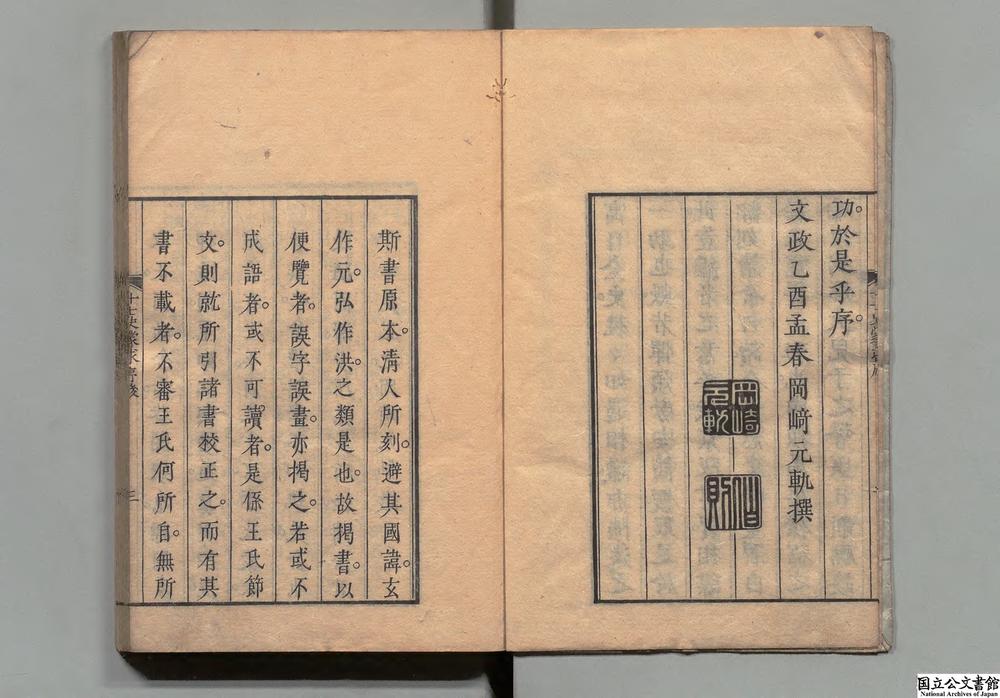 功於是乎序。
文政乙酉孟春岡﨑元軌撰
岡﨑
元軌
斯書原本。淸人所刻。避其國諱。玄
作元。弘作洪。之類是也。故揭書。以
便覽者。誤字誤畫。亦揭之。若或不
成語者。或不可讀者。是係王氏節
文。則就所引諸書校正之。而有其
書不載者。不審王氏何所自。無所
三
国立公文書館
National Archives of Japan